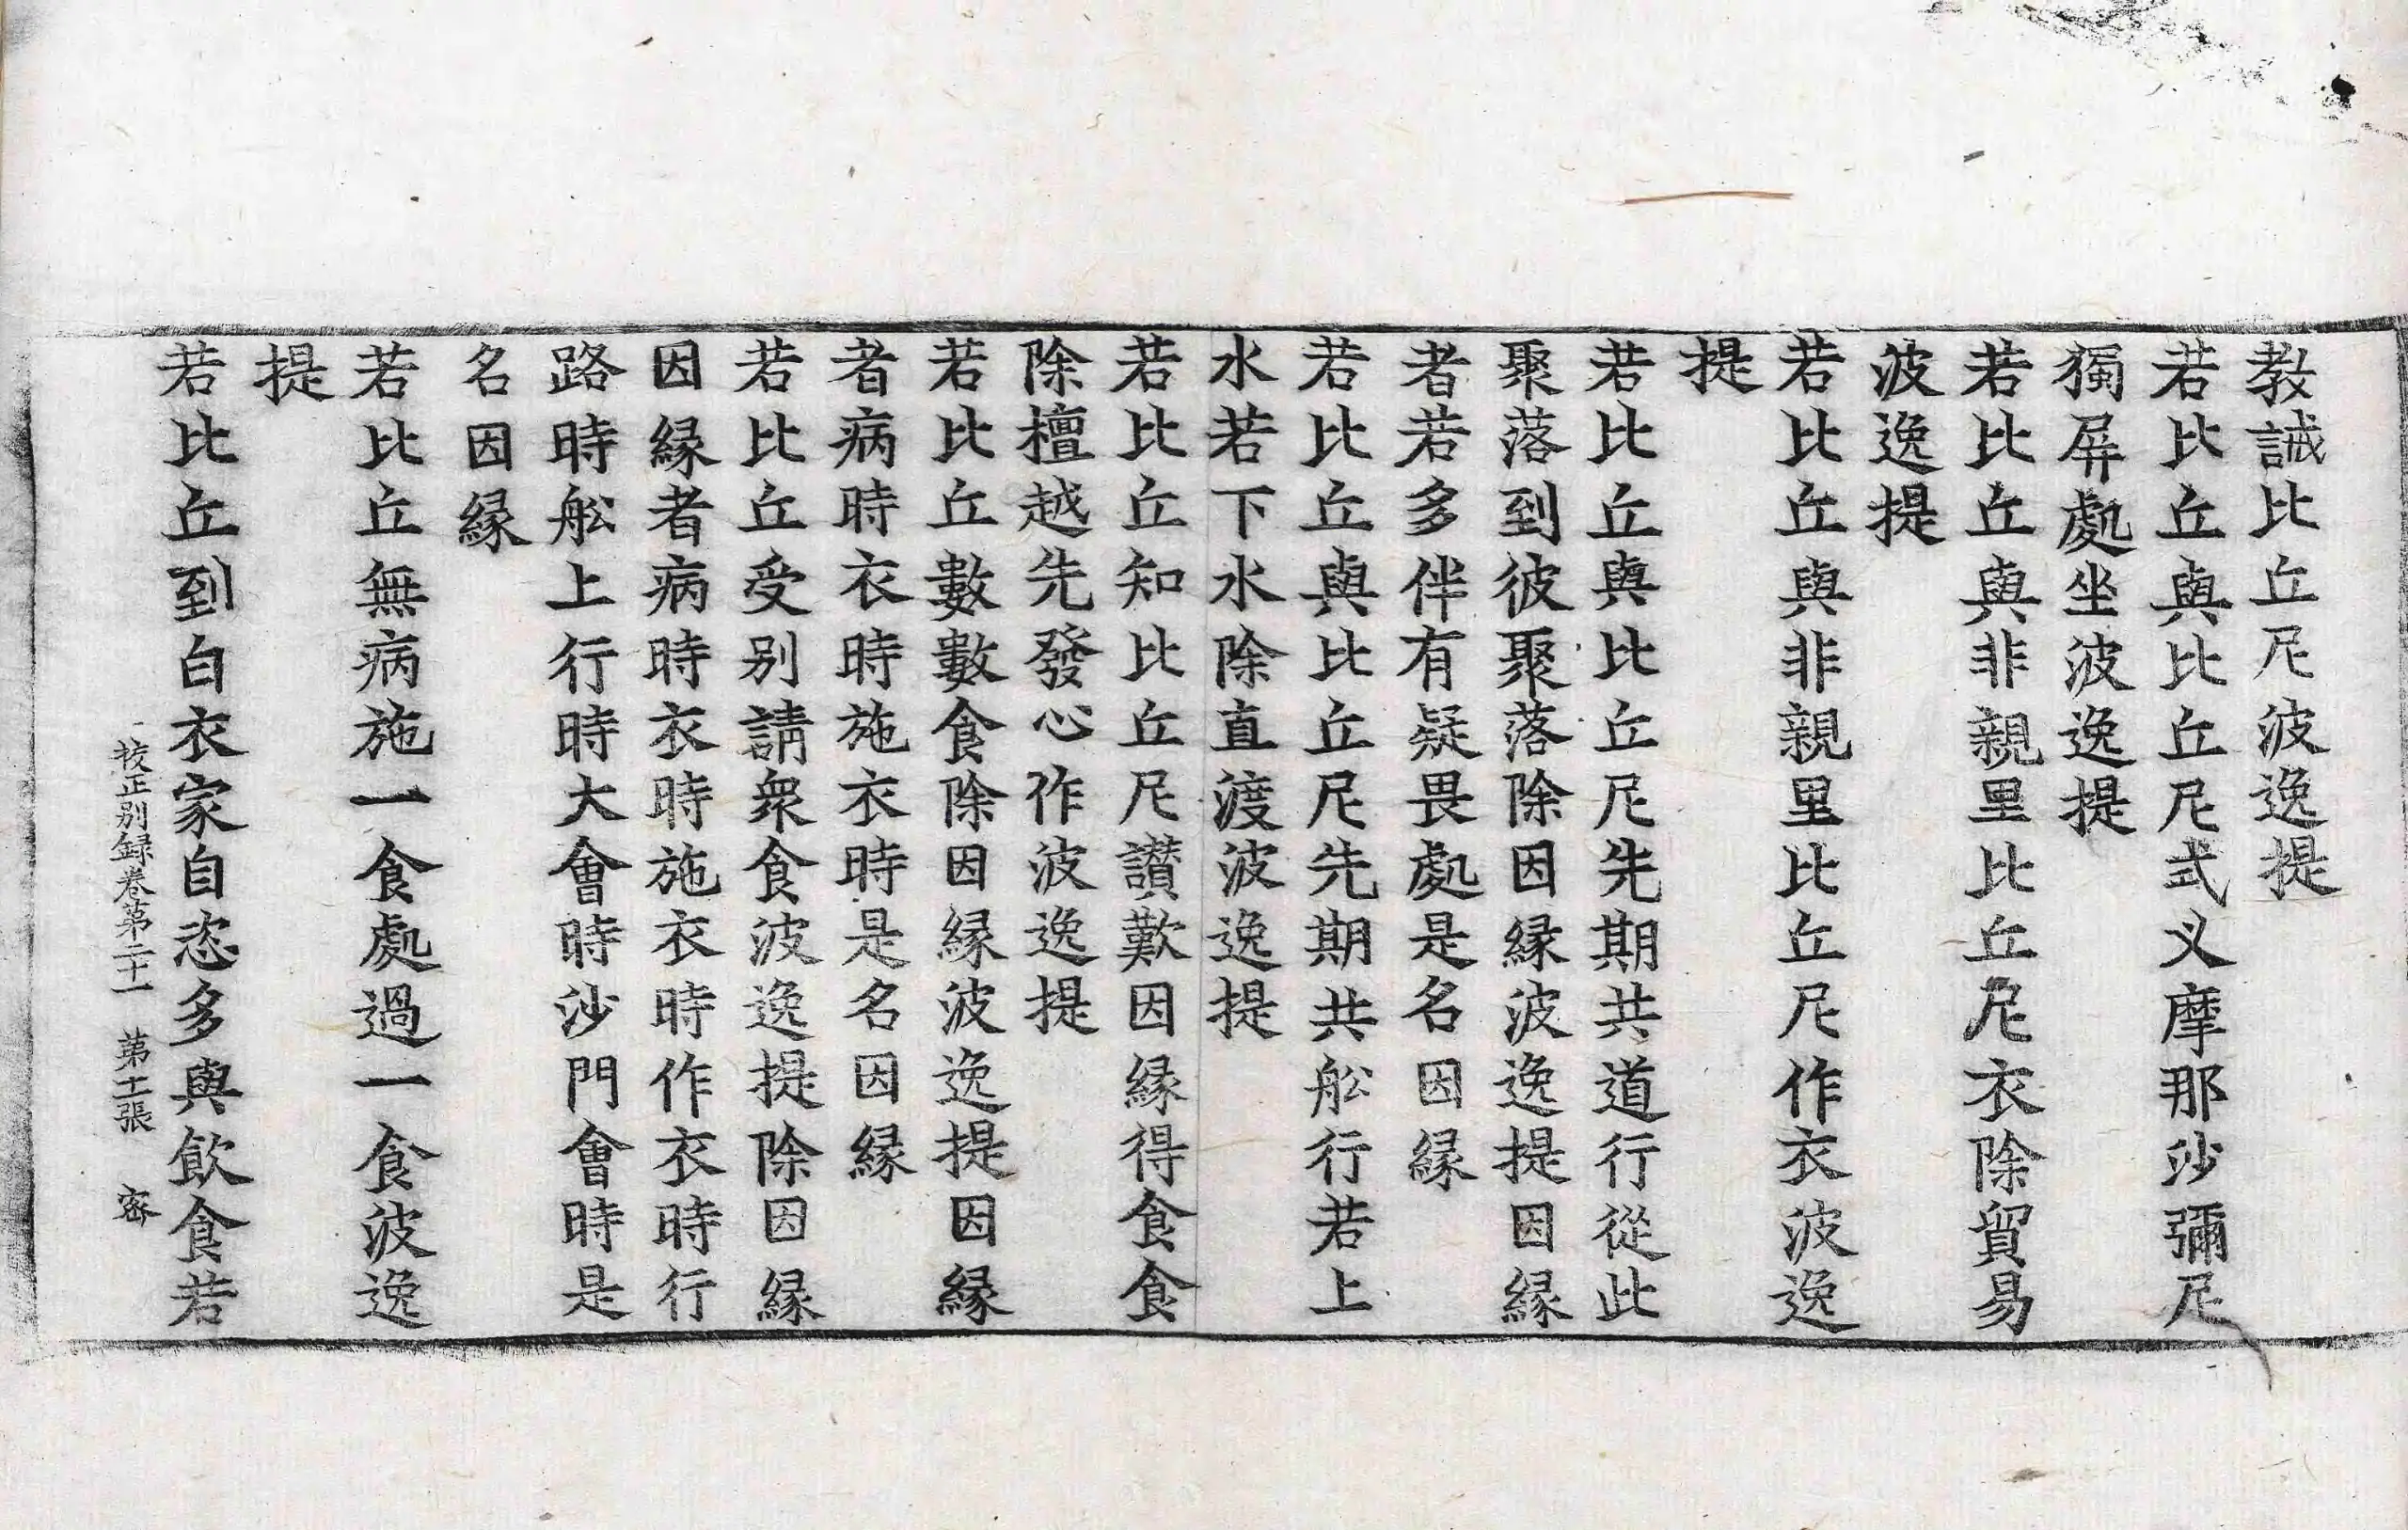 教誡比丘尼波逸提
若比丘與比丘尼式叉摩那沙彌尼
獨屏處坐波逸提
若比丘與非親里比丘尼衣除貿易
波逸提
若比丘與非親里比丘尼作衣波逸
提
若比丘與比丘尼先期共道行從此
聚落到彼聚落除因緣波逸提因緣
者若多伴有疑畏處是名因緣
若比丘與比丘尼先期共舩行若上
水若下水除直渡波逸提
若比丘知比丘尼讃歎因緣得食食
除檀越先發心作波逸提
若比丘數數食除因緣波逸提因緣
者病時衣時施衣時是名因緣
若比丘受別請衆食波逸提除因緣
因緣者病時衣時施衣時作衣時行
路時舩上行時大會時沙門會時是
名因緣
若比丘無病施一食處過一食波逸
提
若比丘到白衣家自恣多與飲食若
挍正別録卷第二十一 第十二張 密